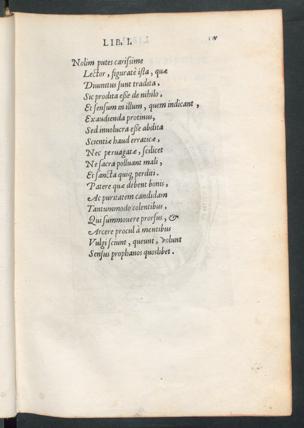 LIB. I.
Nolim putes carissime
Lector, figuratè ista, quæ
Diuinitus sunt tradita,
Sic prodita esse de nihilo,
Et sensum in illum, quem indicant,
Exaudienda protinus,
Sed inuolucra esse abdita
Scientiæ haud erraticæ,
Nec peruagatæ, scilicet
Ne sacra polluant mali,
Et sancta quiq; perditi.
Patere quæ debent bonis,
Ac puritatem candidam
Tantummodo colentibus,
Qui summouere prorsus, &
Arcere procul à mentibus
Vulgi sciunt, queunt, volunt
Sensus prophanos quoslibet.